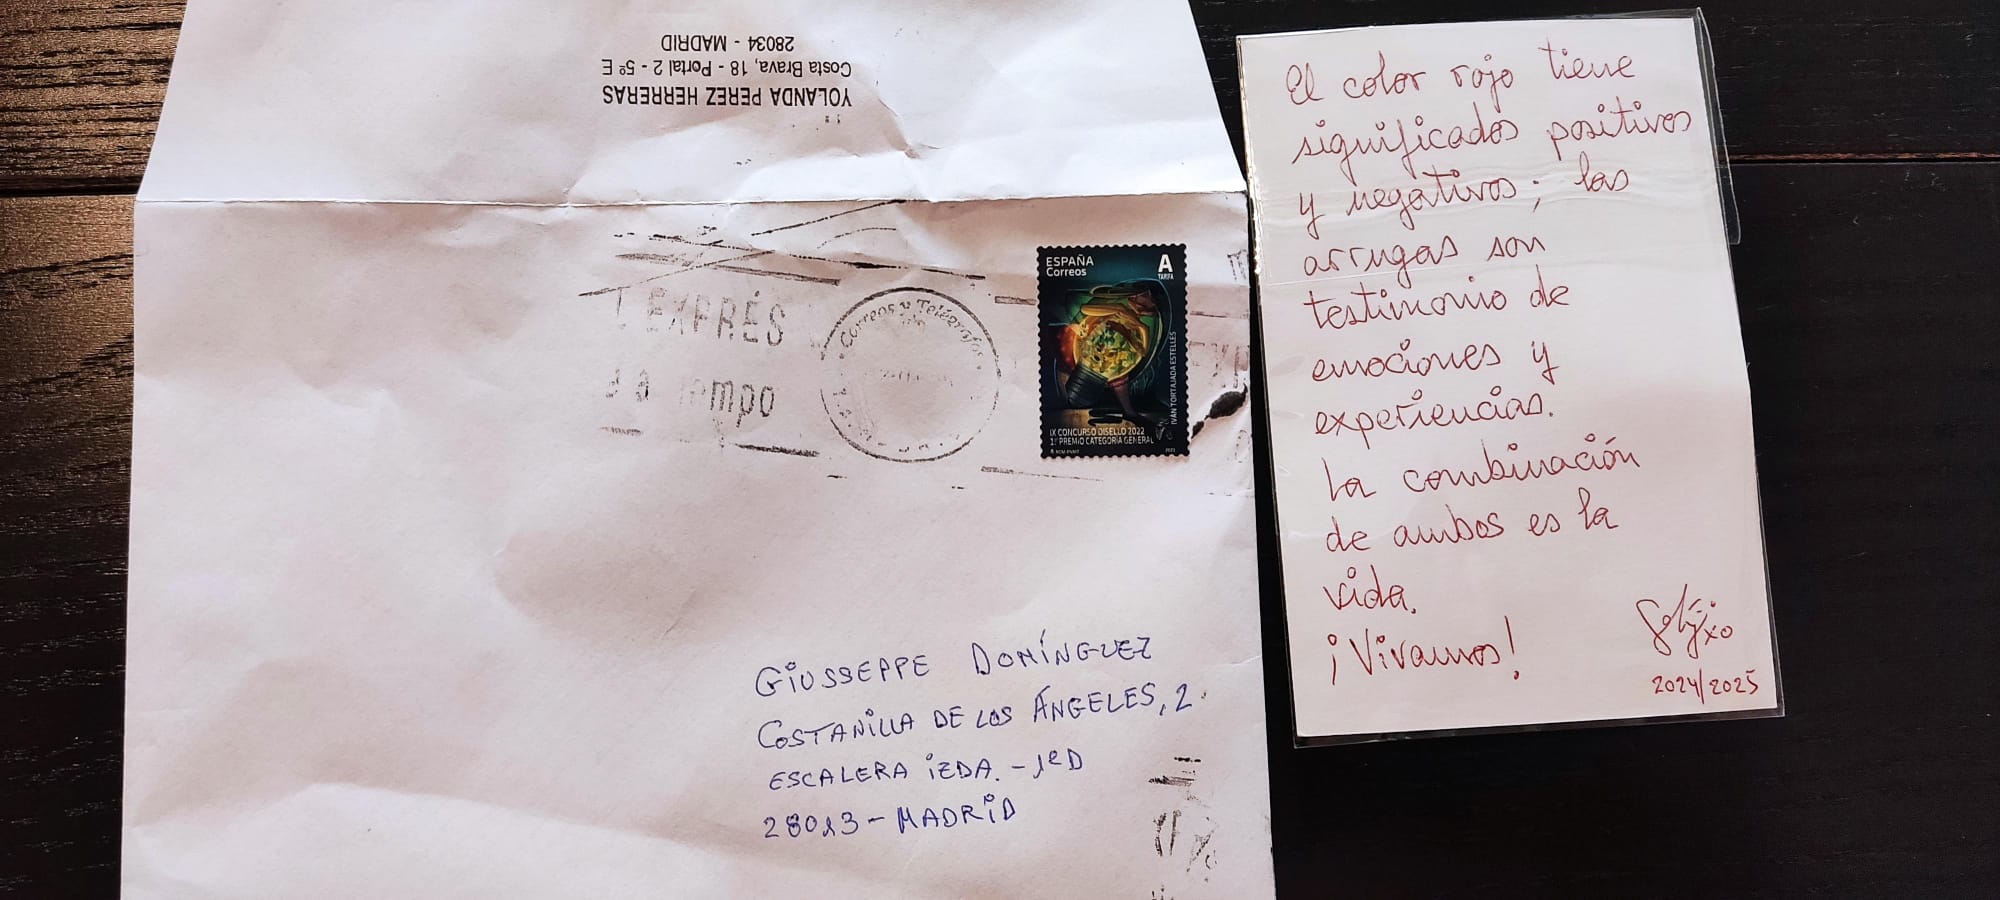 YOLANDA PEREZ HERRERAS
Costa Brava, 18 - Portal 2 - 5º E
28034 - MADRID
EXPRÉS
Correos y Telégrafos
ESPAÑA
Correos
A
TARIFA
IVÁN TORTAJADA ESTELLÉS
IX CONCURSO DISELLO 2022
1er PREMIO CATEGORÍA GENERAL
GIUSSEPPE DOMÍNGUEZ
COSTANILLA DE LOS ÁNGELES, 2.
ESCALERA IZDA. - 1ºD
28013 - MADRID
El color rojo tiene
significados positivos
y negativos; las
arrugas son
testimonio de
emociones y
experiencias.
La combinación
de ambos es la
vida.
¡Vivamos!
2024/2025